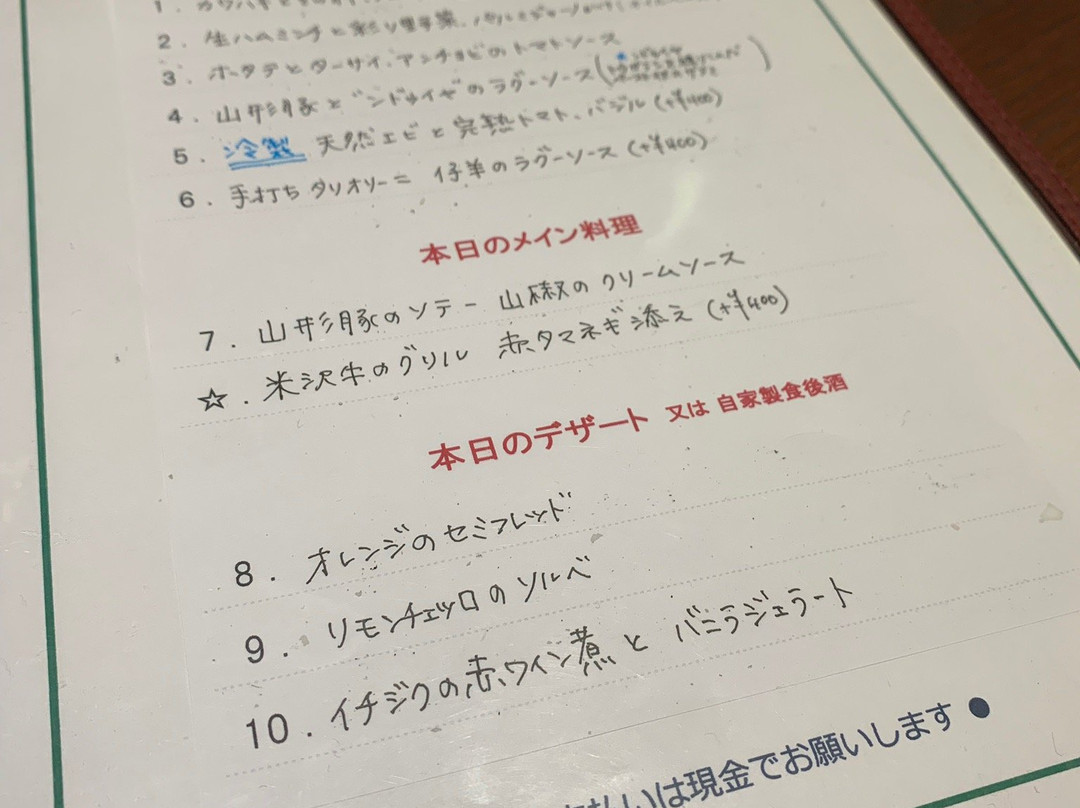 1.
2. 生ハムミンチと彩り野菜、
3. ホタテとターサイ、アンチョビのトマトソース
4. 山形豚と インドサイゲのラグーソース
5. 冷製 天然エビと完熟トマト、バジル (+¥400)
6. 手打ちタリオリーニ 仔羊のラグーソース (+¥400)
本日のメイン料理
7. 山形豚のソテー 山椒のクリームソース
☆. 米沢牛のグリル 赤タマネギ添え (+¥400)
本日のデザート 又は 自家製食後酒
8. オレンジのセミフレッド
9. リモンチェッロのソルベ
10. イチジクの赤ワイン煮と バニラジェラート
払いは現金でお願いします ●